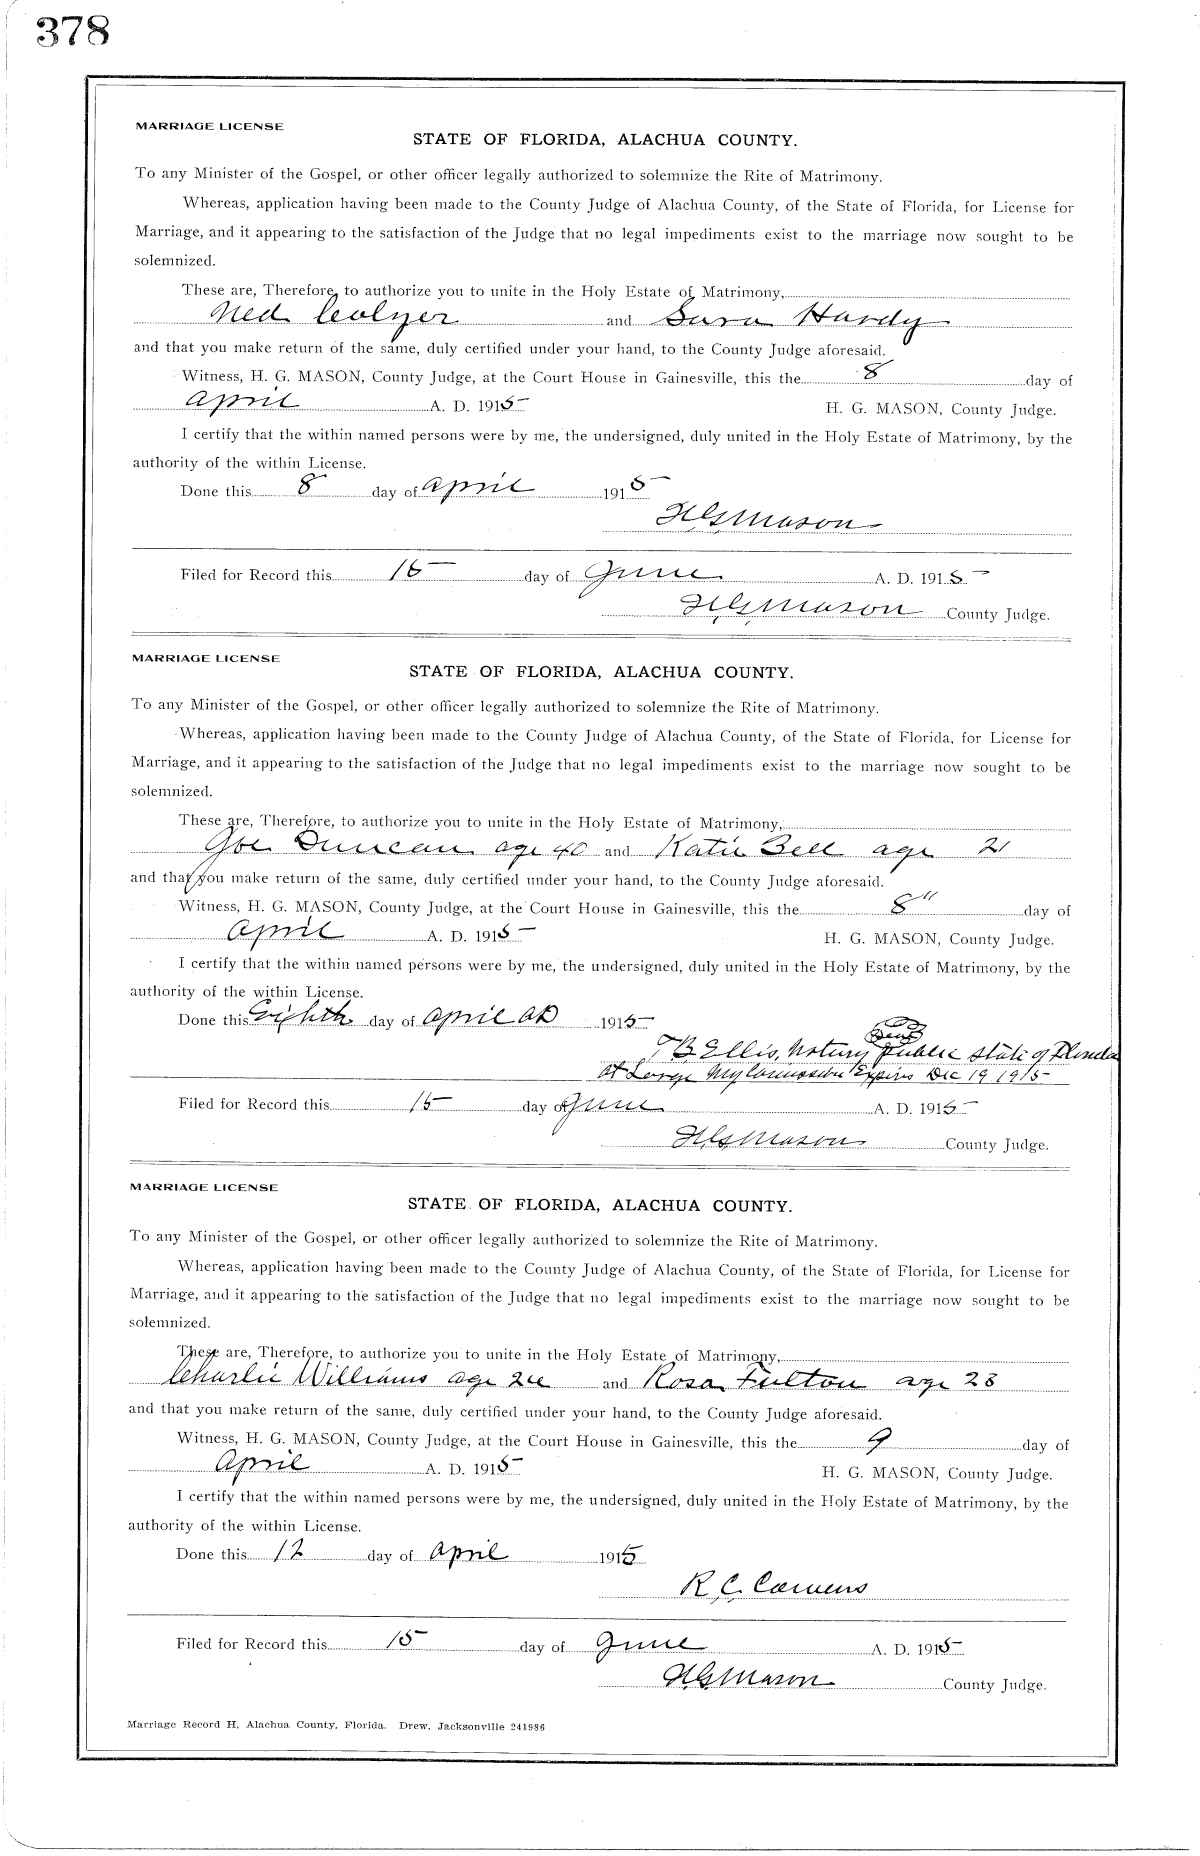 378
MARRIAGE LICENSE
STATE OF FLORIDA, ALACHUA COUNTY.
To any Minister of the Gospel, or other officer legally authorized to solemnize the Rite of Matrimony.
Whereas, application having been made to the County Judge of Alachua County, of the State of Florida, for License for
Marriage, and it appearing to the satisfaction of the Judge that no legal impediments exist to the marriage now sought to be
solemnized.
These are, Therefore, to authorize you to unite in the Holy Estate of Matrimony,
Ned and Sara Hardy
and that you make return of the same, duly certified under your hand, to the County Judge aforesaid.
Witness, H. G. MASON, County Judge, at the Court House in Gainesville, this the 8 day of
April A. D. 1915 H. G. MASON, County Judge.
I certify that the within named persons were by me, the undersigned, duly united in the Holy Estate of Matrimony, by the
authority of the within License.
Done this 8 day of April 1915
H G Mason
Filed for Record this 15 day of June A. D. 1915
H G Mason County Judge.
MARRIAGE LICENSE
STATE OF FLORIDA, ALACHUA COUNTY.
To any Minister of the Gospel, or other officer legally authorized to solemnize the Rite of Matrimony.
Whereas, application having been made to the County Judge of Alachua County, of the State of Florida, for License for
Marriage, and it appearing to the satisfaction of the Judge that no legal impediments exist to the marriage now sought to be
solemnized.
These are, Therefore, to authorize you to unite in the Holy Estate of Matrimony,
Joe Duncan age 40 and Katie Bell age 21
and that you make return of the same, duly certified under your hand, to the County Judge aforesaid.
Witness, H. G. MASON, County Judge, at the Court House in Gainesville, this the 8" day of
April A. D. 1915 H. G. MASON, County Judge.
I certify that the within named persons were by me, the undersigned, duly united in the Holy Estate of Matrimony, by the
authority of the within License.
Done this Eighth day of April AD 1915
Seal
T B Ellis, Notary Public State of Florida
at Large My Commission Expires Dec 19 1915
Filed for Record this 15 day of June A. D. 1915
H G Mason County Judge.
MARRIAGE LICENSE
STATE OF FLORIDA, ALACHUA COUNTY.
To any Minister of the Gospel, or other officer legally authorized to solemnize the Rite of Matrimony.
Whereas, application having been made to the County Judge of Alachua County, of the State of Florida, for License for
Marriage, and it appearing to the satisfaction of the Judge that no legal impediments exist to the marriage now sought to be
solemnized.
These are, Therefore, to authorize you to unite in the Holy Estate of Matrimony,
Charlie Williams age 24 and Rosa Fulton age 23
and that you make return of the same, duly certified under your hand, to the County Judge aforesaid.
Witness, H. G. MASON, County Judge, at the Court House in Gainesville, this the 9 day of
April A. D. 1915 H. G. MASON, County Judge.
I certify that the within named persons were by me, the undersigned, duly united in the Holy Estate of Matrimony, by the
authority of the within License.
Done this 12 day of April 1915
R. C.
Filed for Record this 15 day of June A. D. 1915
H G Mason County Judge.
Marriage Record H, Alachua County, Florida. Drew, Jacksonville 241986